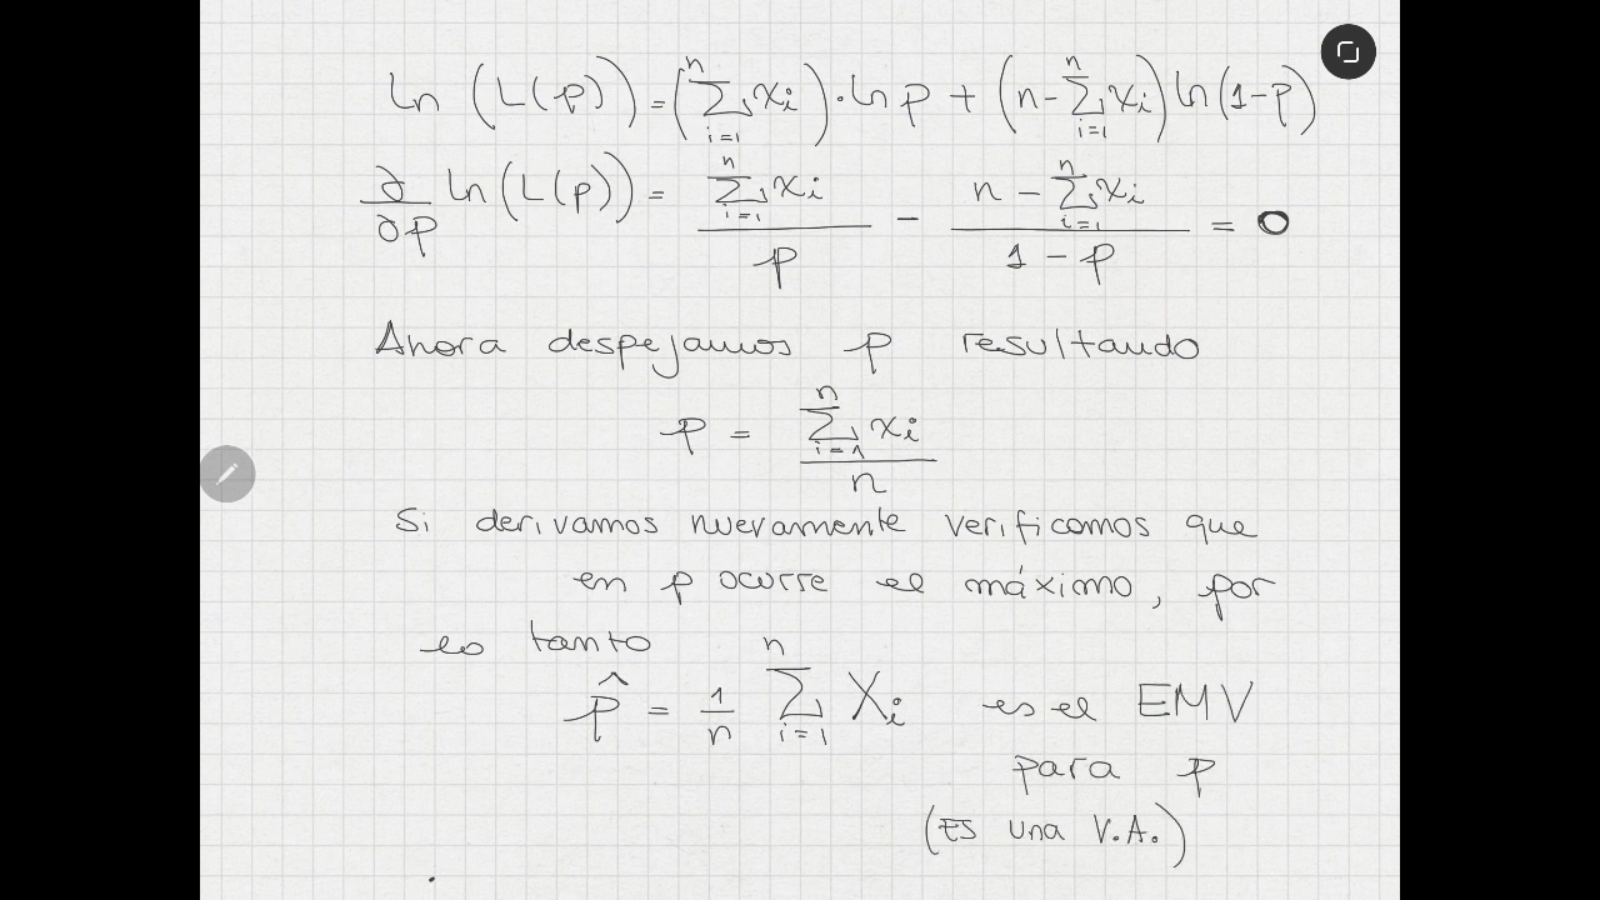 ln (L(p)) = (∑_{i=1}^{n} xi) · ln p + (n - ∑_{i=1}^{n} xi) ln(1-p)
∂/∂p ln (L(p)) = (∑_{i=1}^{n} xi)/p - (n - ∑_{i=1}^{n} xi)/(1 - p) = 0
Ahora despejamos p resultando
p = (∑_{i=1}^{n} xi)/n
Si derivamos nuevamente verificamos que
en p ocurre el máximo, por
lo tanto
p̂ = 1/n ∑_{i=1}^{n} Xi es el EMV
para p
(Es una V.A.)